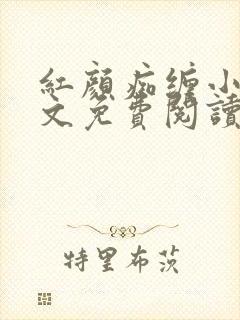 紅顏痴纏小
文免費閱讀
特里布茨